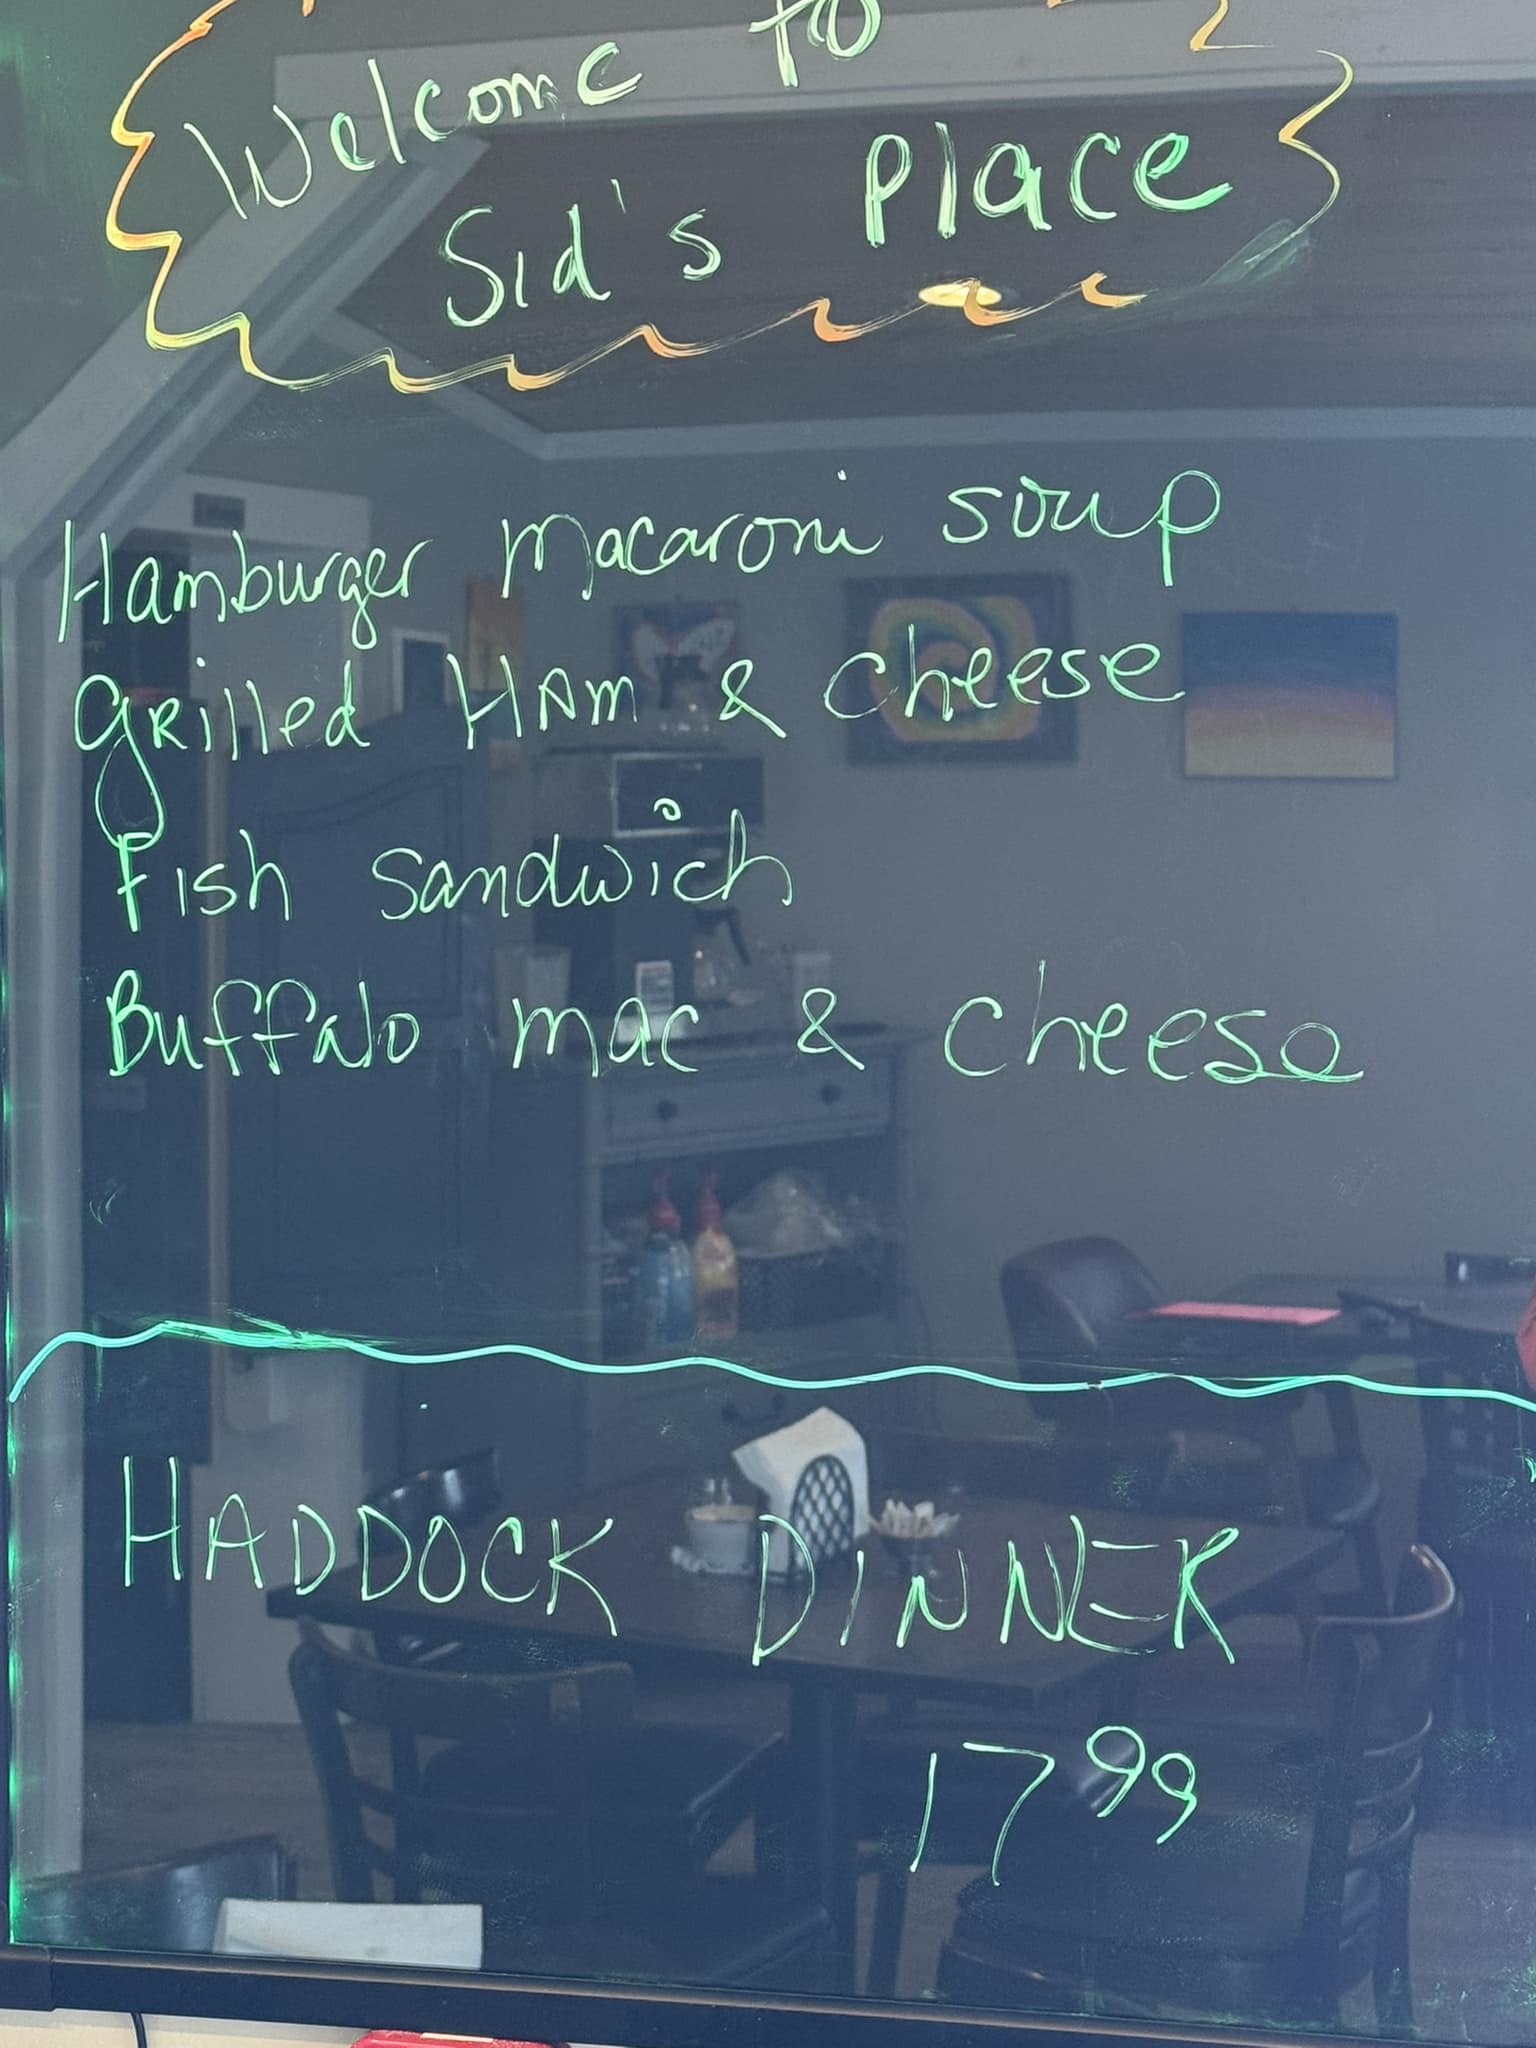 Welcome to
Sid's Place
Hamburger Macaroni soup
Grilled HAM & cheese
Fish Sandwich
Buffalo mac & cheese
HADDOCK DINNER
17 99